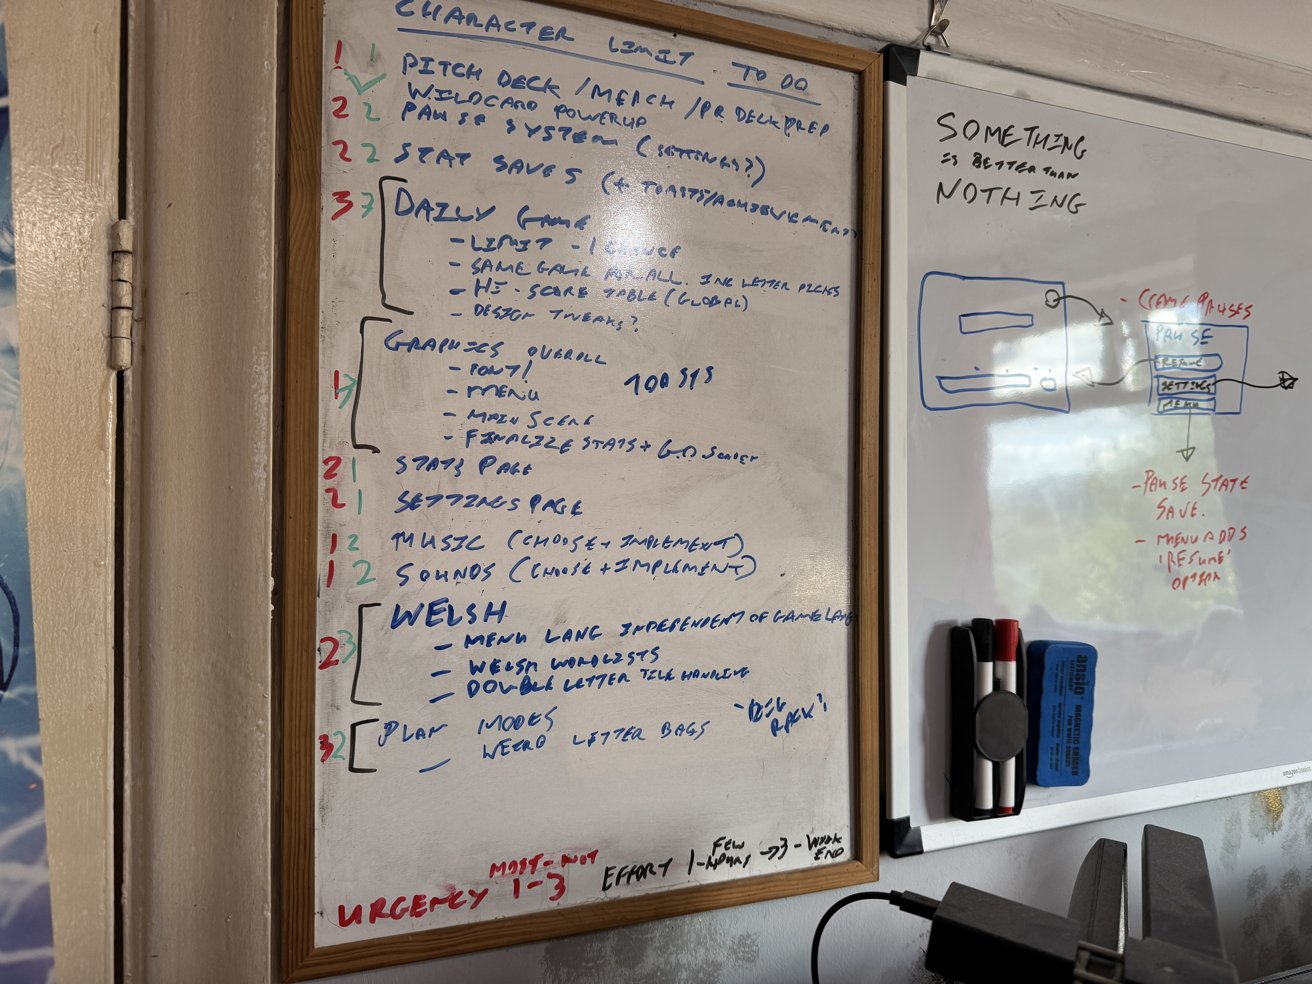 CHARACTER LIMIT TO DO
1 1 PITCH DECK / MERCH / PR DECK PREP
WILDCARD POWERUP
2 2 PAUSE SYSTEM (SETTINGS?)
2 2 STAT SAVES (+ TOASTS/ACHIEVEMENTS
3 DAILY GAME
- LIMIT - 1 CHANCE
- SAME GAME FOR ALL. INC LETTER PICKS
- HI-SCORE TABLE (GLOBAL)
- DESIGN TWEAKS?
1 GRAPHICS OVERALL
- FONT!
- MENU
- MAIN SCENE
- FINALIZE STATS + G.O. SCREEN
2 1 STATS PAGE
2 1 SETTINGS PAGE
1 2 MUSIC (CHOOSE + IMPLEMENT)
1 2 SOUNDS (CHOOSE + IMPLEMENT)
2 3 WELSH
- MENU LANG INDEPENDENT OF GAME LANG
- WELSH WORDLISTS
- DOUBLE LETTER TILE HANDLING
3 2 PLAN MODES
- WEIRD LETTER BAGS
- 'BIG
RACK'
URGENCY MOST - NOT
1-3
EFFORT 1 - FEW
HOURS → 3 - WEEK
END
SOMETHING
IS BETTER THAN
NOTHING
- GAME PAUSES
PAUSE
RESUME
SETTINGS
MENU
- PAUSE STATE
SAVE.
- MENU ADDS
'RESUME'
OPTION
ansio
MAGNETIC ERASER
FOR WHITE BOARDS
amazon basics